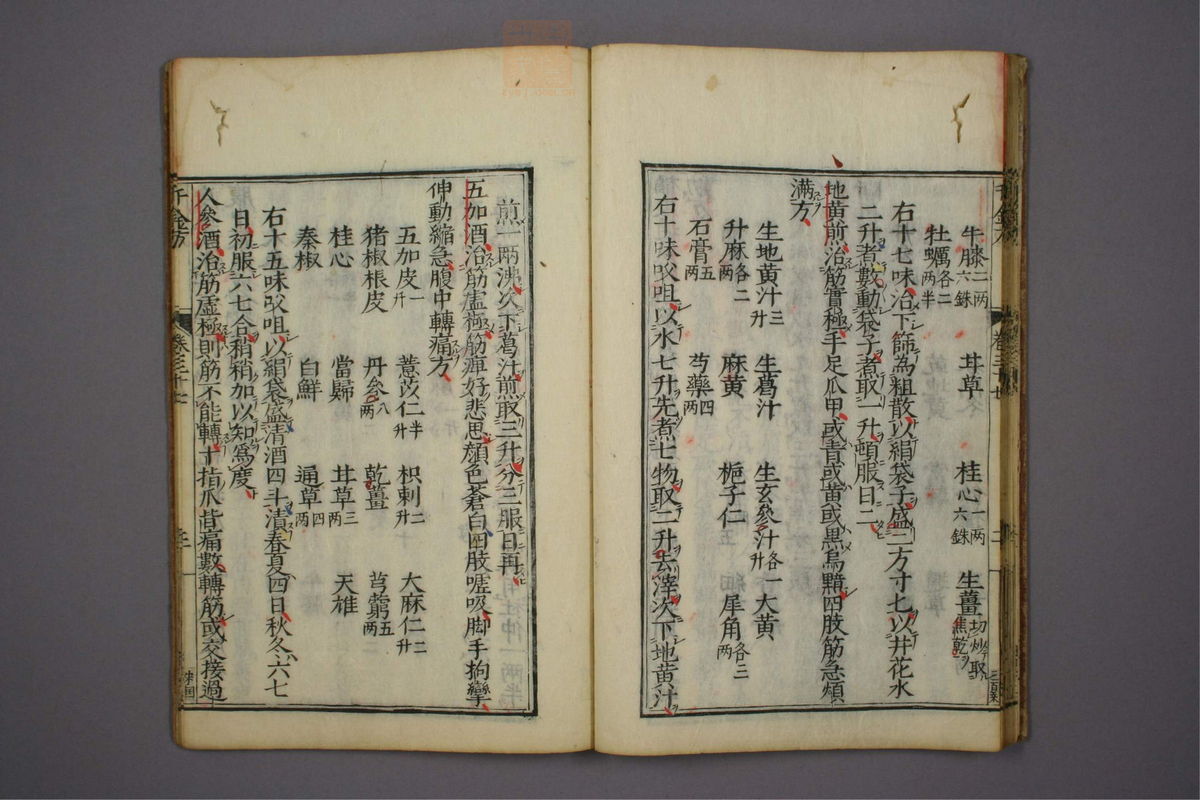 牛膝二兩六銖 甘草 桂心一兩六銖 生薑切炒取焦乾
牡蠣各二兩半
右十七味治下篩為粗散以絹袋子盛二方寸匕以井花水
二升煮數動袋子煮取一升頓服日二
地黄煎治筋實極手足爪甲或青或黄或黑烏黯四肢筋急煩
滿方
生地黄汁三升 生葛汁 生玄參汁各一升 大黄
升麻各二兩 麻黄 梔子仁 犀角各三兩
石膏五兩 芍藥四兩
右十味㕮咀以水七升先煮七物取二升去滓次下地黄汁
煎一兩沸次下葛汁煎取三升分三服日再
五加酒治筋虛極筋痺好悲思顔色蒼白四肢噓吸脚手拘攣
伸動縮急腹中轉痛方
五加皮一斤 薏苡仁半升 枳刺二升 大麻仁三升
猪椒根皮 丹參八兩 乾薑 芎藭五兩
桂心 當歸 甘草三兩 天雄
秦椒 白鮮 通草四兩
右十五味㕮咀以絹袋盛清酒四斗漬春夏四日秋冬六七
日初服六七合稍稍加以知爲度
人參酒治筋虛極則筋不能轉十指爪皆痛數轉筋或交接過
千金方 卷三十七